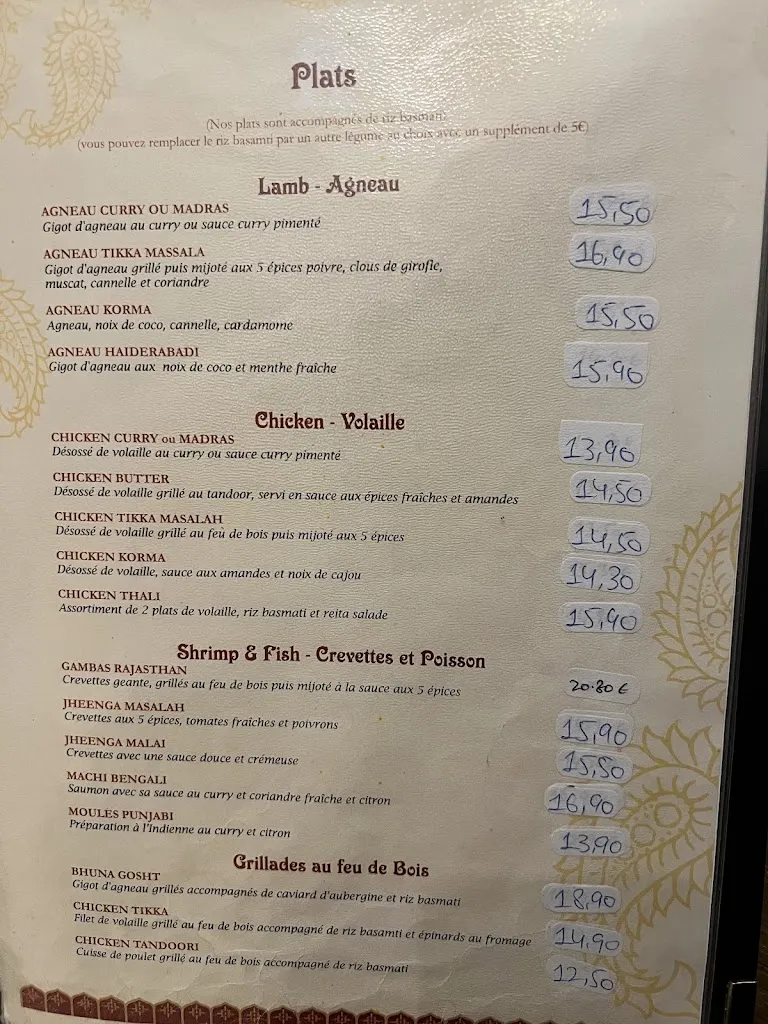 Plats
(Nos plats sont accompagnés de riz basmati)
(vous pouvez remplacer le riz basamti par un autre légume au choix avec un supplément de 5€)
Lamb - Agneau
AGNEAU CURRY OU MADRAS 15,50
Gigot d'agneau au curry ou sauce curry pimenté
AGNEAU TIKKA MASSALA 16,90
Gigot d'agneau grillé puis mijoté aux 5 épices poivre, clous de girofle,
muscat, cannelle et coriandre
AGNEAU KORMA 15,50
Agneau, noix de coco, cannelle, cardamome
AGNEAU HAIDERABADI 15,90
Gigot d'agneau aux noix de coco et menthe fraîche
Chicken - Volaille
CHICKEN CURRY ou MADRAS 13,90
Désossé de volaille au curry ou sauce curry pimenté
CHICKEN BUTTER 14,50
Désossé de volaille grillé au tandoor, servi en sauce aux épices fraîches et amandes
CHICKEN TIKKA MASALAH 14,50
Désossé de volaille grillé au feu de bois puis mijoté aux 5 épices
CHICKEN KORMA 14,30
Désossé de volaille, sauce aux amandes et noix de cajou
CHICKEN THALI 15,90
Assortiment de 2 plats de volaille, riz basmati et reita salade
Shrimp & Fish - Crevettes et Poisson
GAMBAS RAJASTHAN 20.80 €
Crevettes geante, grillés au feu de bois puis mijoté à la sauce aux 5 épices
JHEENGA MASALAH 15,90
Crevettes aux 5 épices, tomates fraîches et poivrons
JHEENGA MALAI 15,50
Crevettes avec une sauce douce et crémeuse
MACHI BENGALI 16,90
Saumon avec sa sauce au curry et coriandre fraîche et citron
MOULES PUNJABI 13,90
Préparation à l'Indienne au curry et citron
Grillades au feu de Bois
BHUNA GOSHT 18,90
Gigot d'agneau grillés accompagnés de caviard d'aubergine et riz basmati
CHICKEN TIKKA 14,90
Filet de volaille grillé au feu de bois accompagné de riz basamti et épinards au fromage
CHICKEN TANDOORI 12,50
Cuisse de poulet grillé au feu de bois accompagné de riz basmati